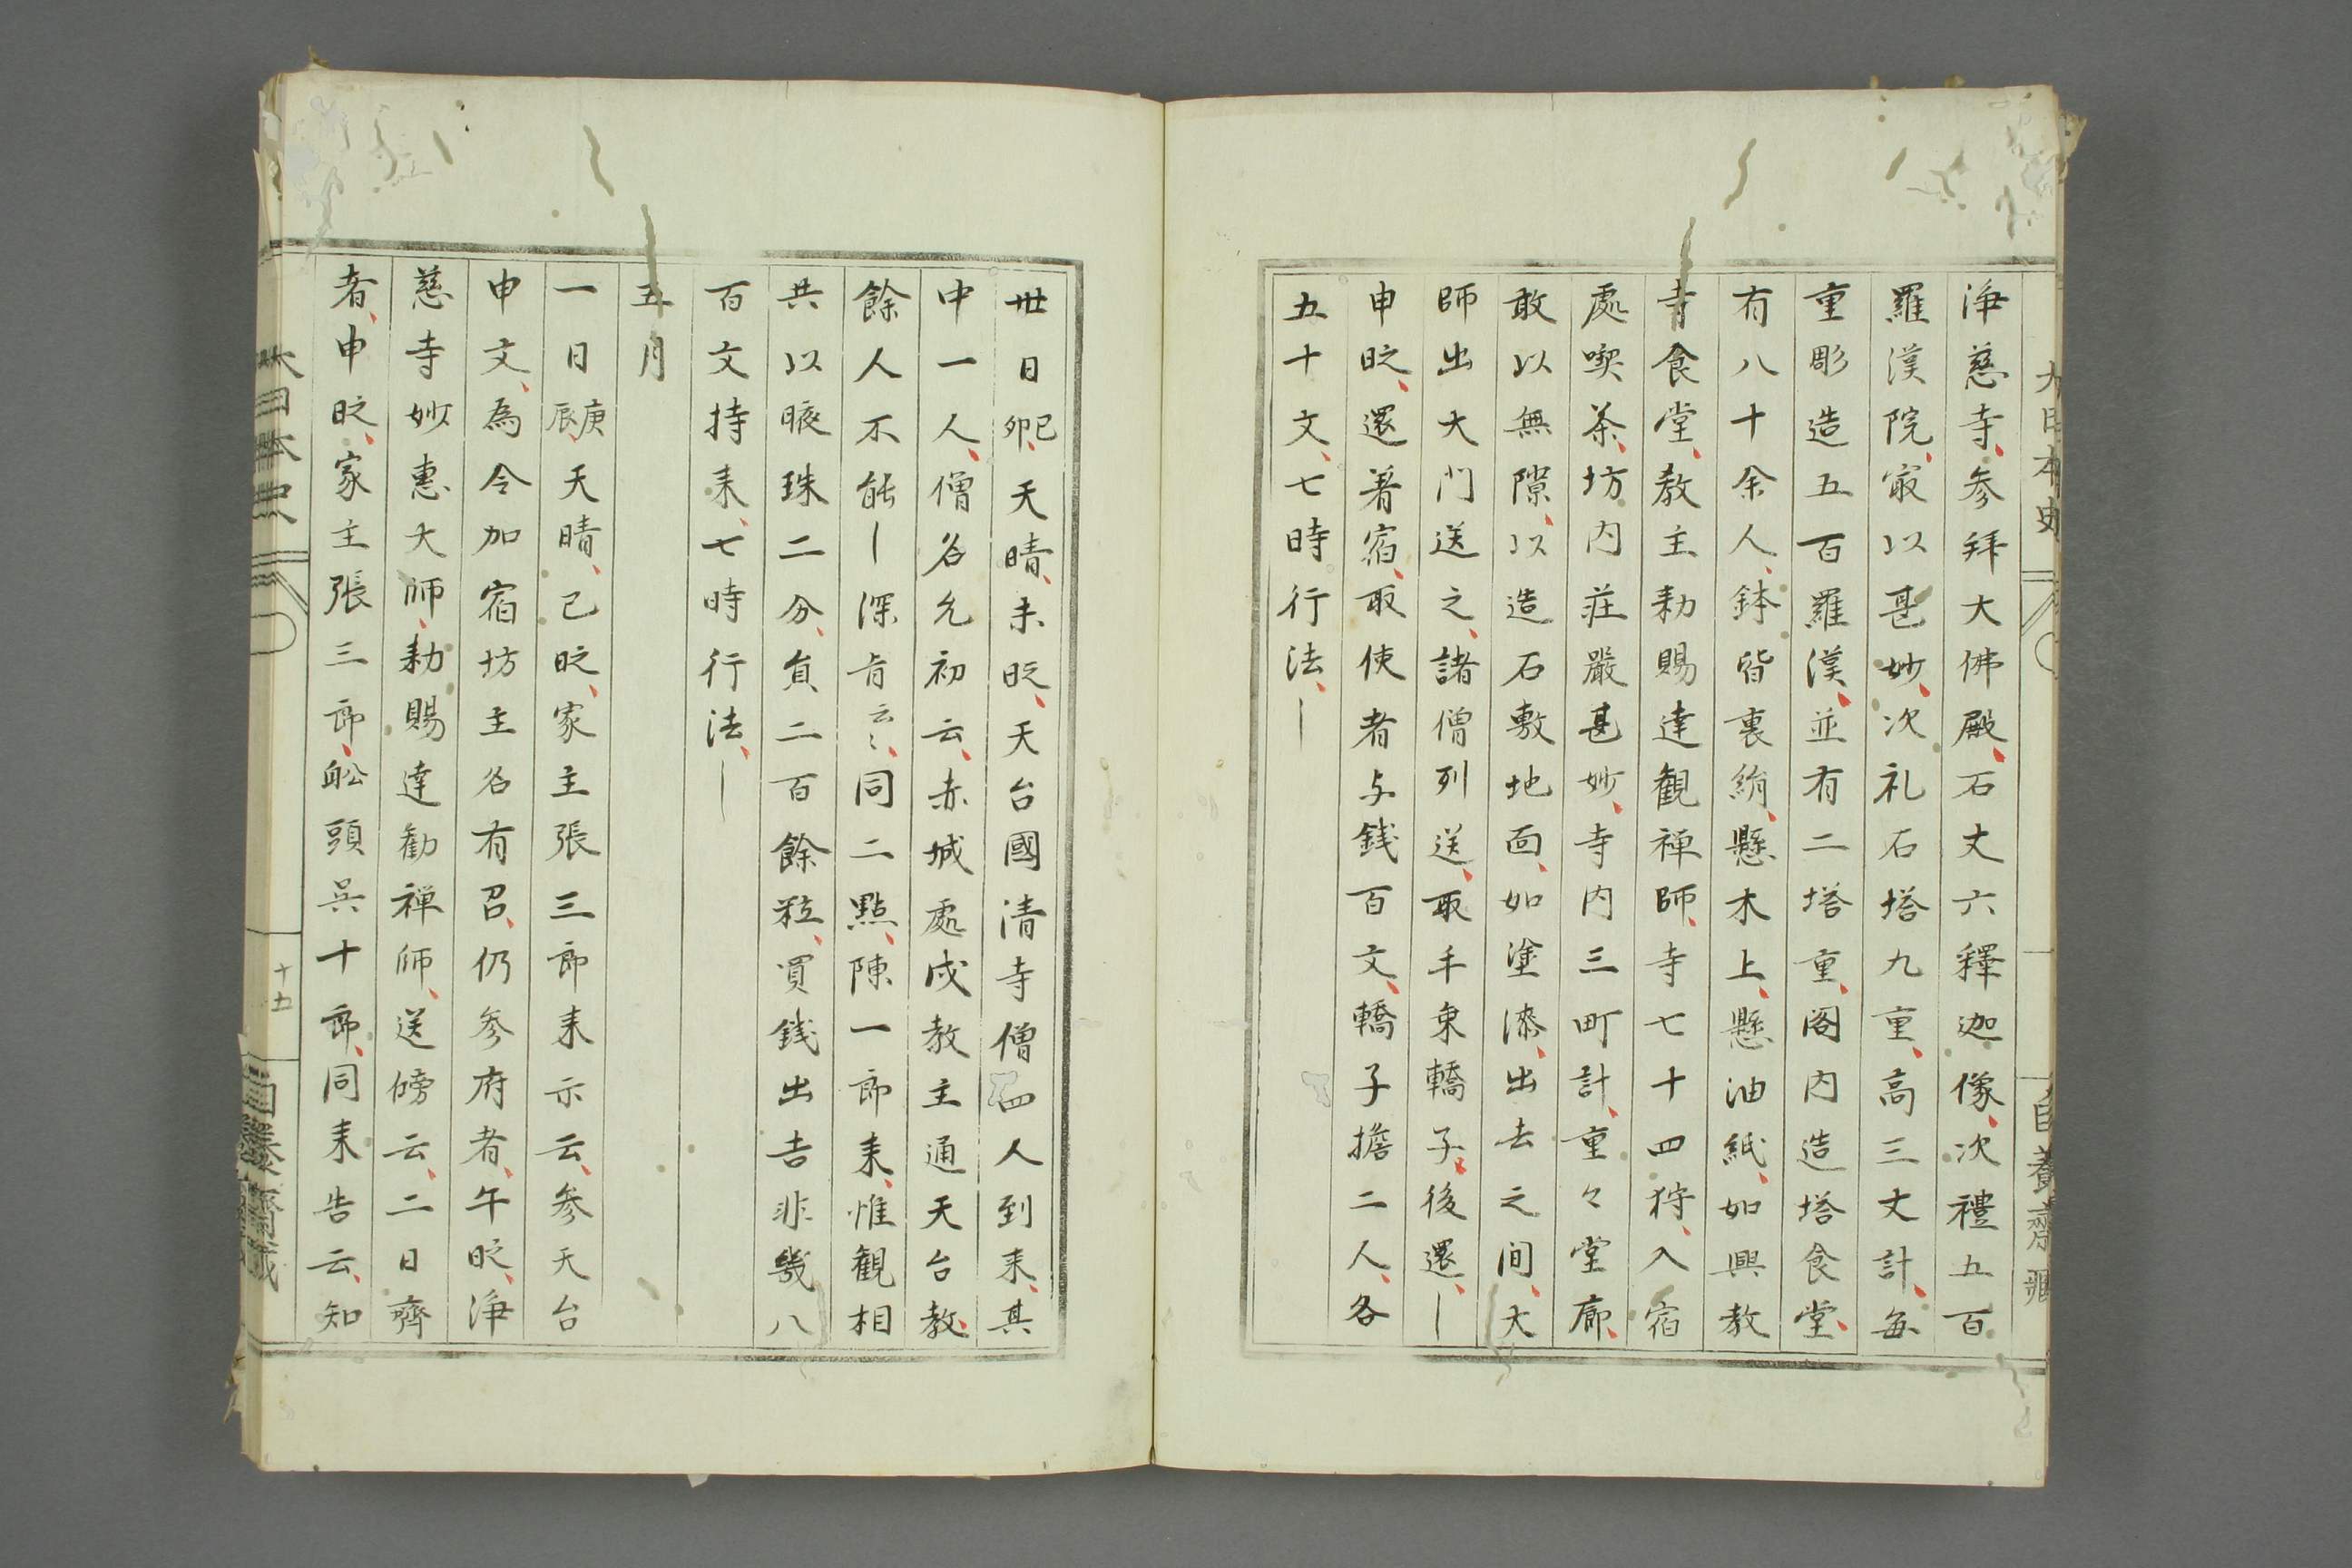 淨慈寺、参拜大佛殿、石丈六釋迦像、次禮五百
羅漢院、㝡以甚妙、次礼石塔九重、高三丈計、毎
重彫造五百羅漢、並有二塔重、閣内造塔食堂、
有八十余人、鉢皆裹絹、懸木上、懸油紙、如興教
寺食堂、教主勅賜達観禅師、寺七十四狩、入宿
處喫茶、坊内荘嚴甚妙、寺内三町計、重々堂廊、
敢以無隙、以造石敷地面、如塗漆、出去之间、大
師出大门送之、諸僧列送、取手東轎子、後還、〡
申昃、還著宿、取使者与銭百文、轎子擔二人、各
五十文、七時行法、〡
丗日己卯、天晴、未昃、天台國清寺僧四人到来、其
中一人、僧名允初云、赤城處成教主通天台教、
餘人不能〡深肯云〻、同二點、陳一郎来、惟観相
共以暎珠二分、負二百餘粒、買銭出𠮷非幾八
百文持来、七時行法、〡
五月
一日庚辰、天晴、己昃、家主張三郎来示云、参天台
申文、為令加宿坊主名有召、仍参府者、午昃、淨
慈寺妙惠大师、勅賜達勧禅师、送傍云、二日齊
者、申昃、家主張三郎、舩頭呉十郎、同来告云、知
大日本史
十五